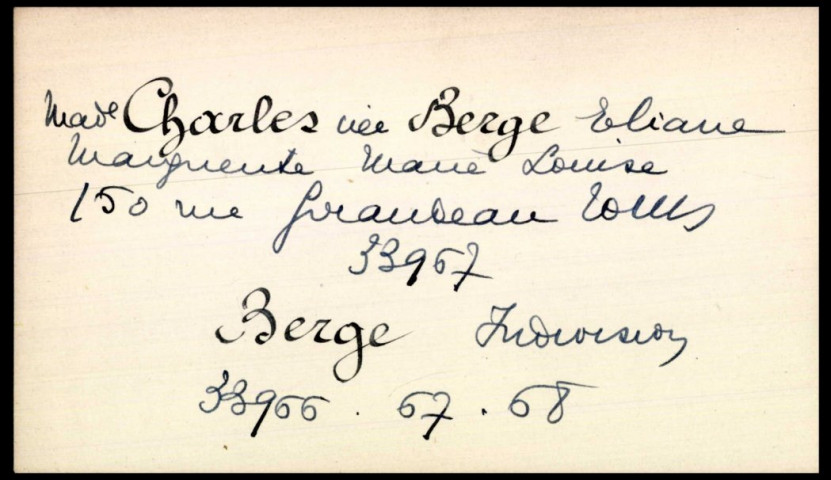 Made Charles née Berge Eliane
Marguerite Marie Louise
150 rue Giraudeau Tours
33967
Berge Indivision
33966 . 67 . 68